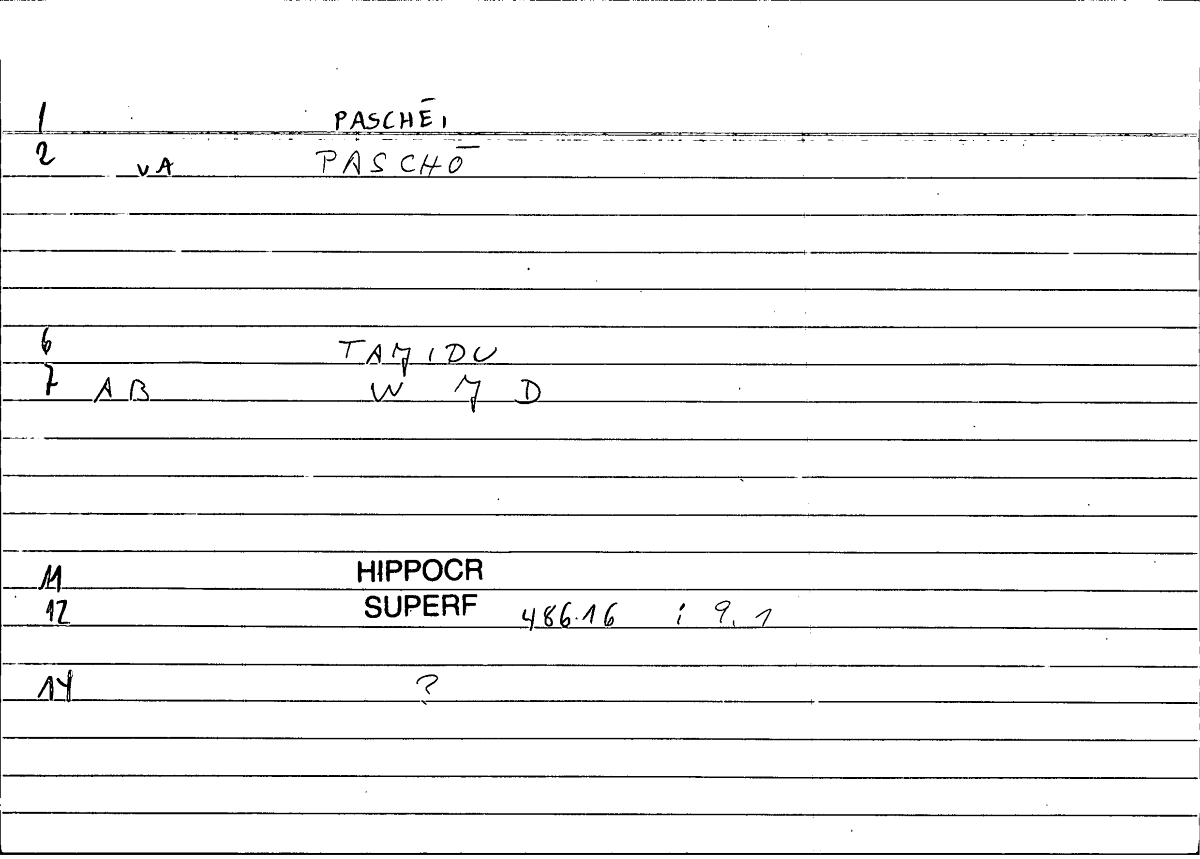 1 PASCHĒI
2 vA PASCHŌ
6 TAʔIDU
7 AB W ʔ D
11 HIPPOCR
12 SUPERF 486.16 i 9.1
14 ?